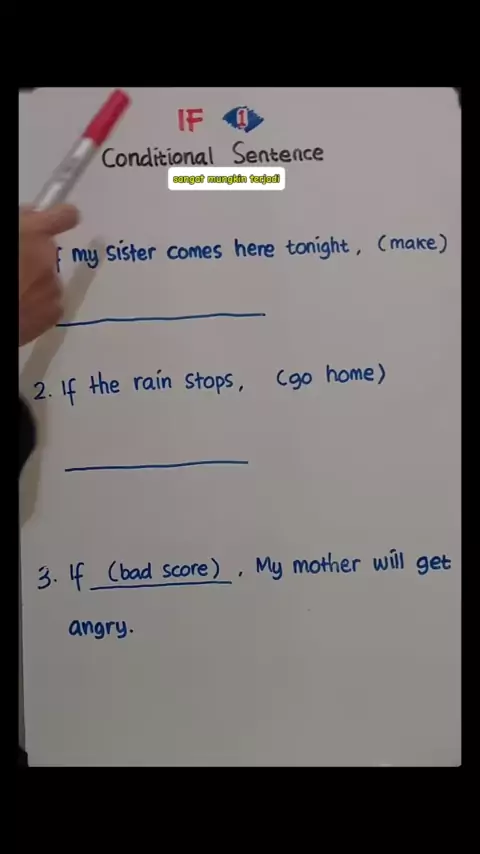 IF 1
Conditional Sentence
sangat mungkin terjadi
my sister comes here tonight, (make)
2. If the rain stops, (go home)
3. If (bad score), My mother will get
angry.